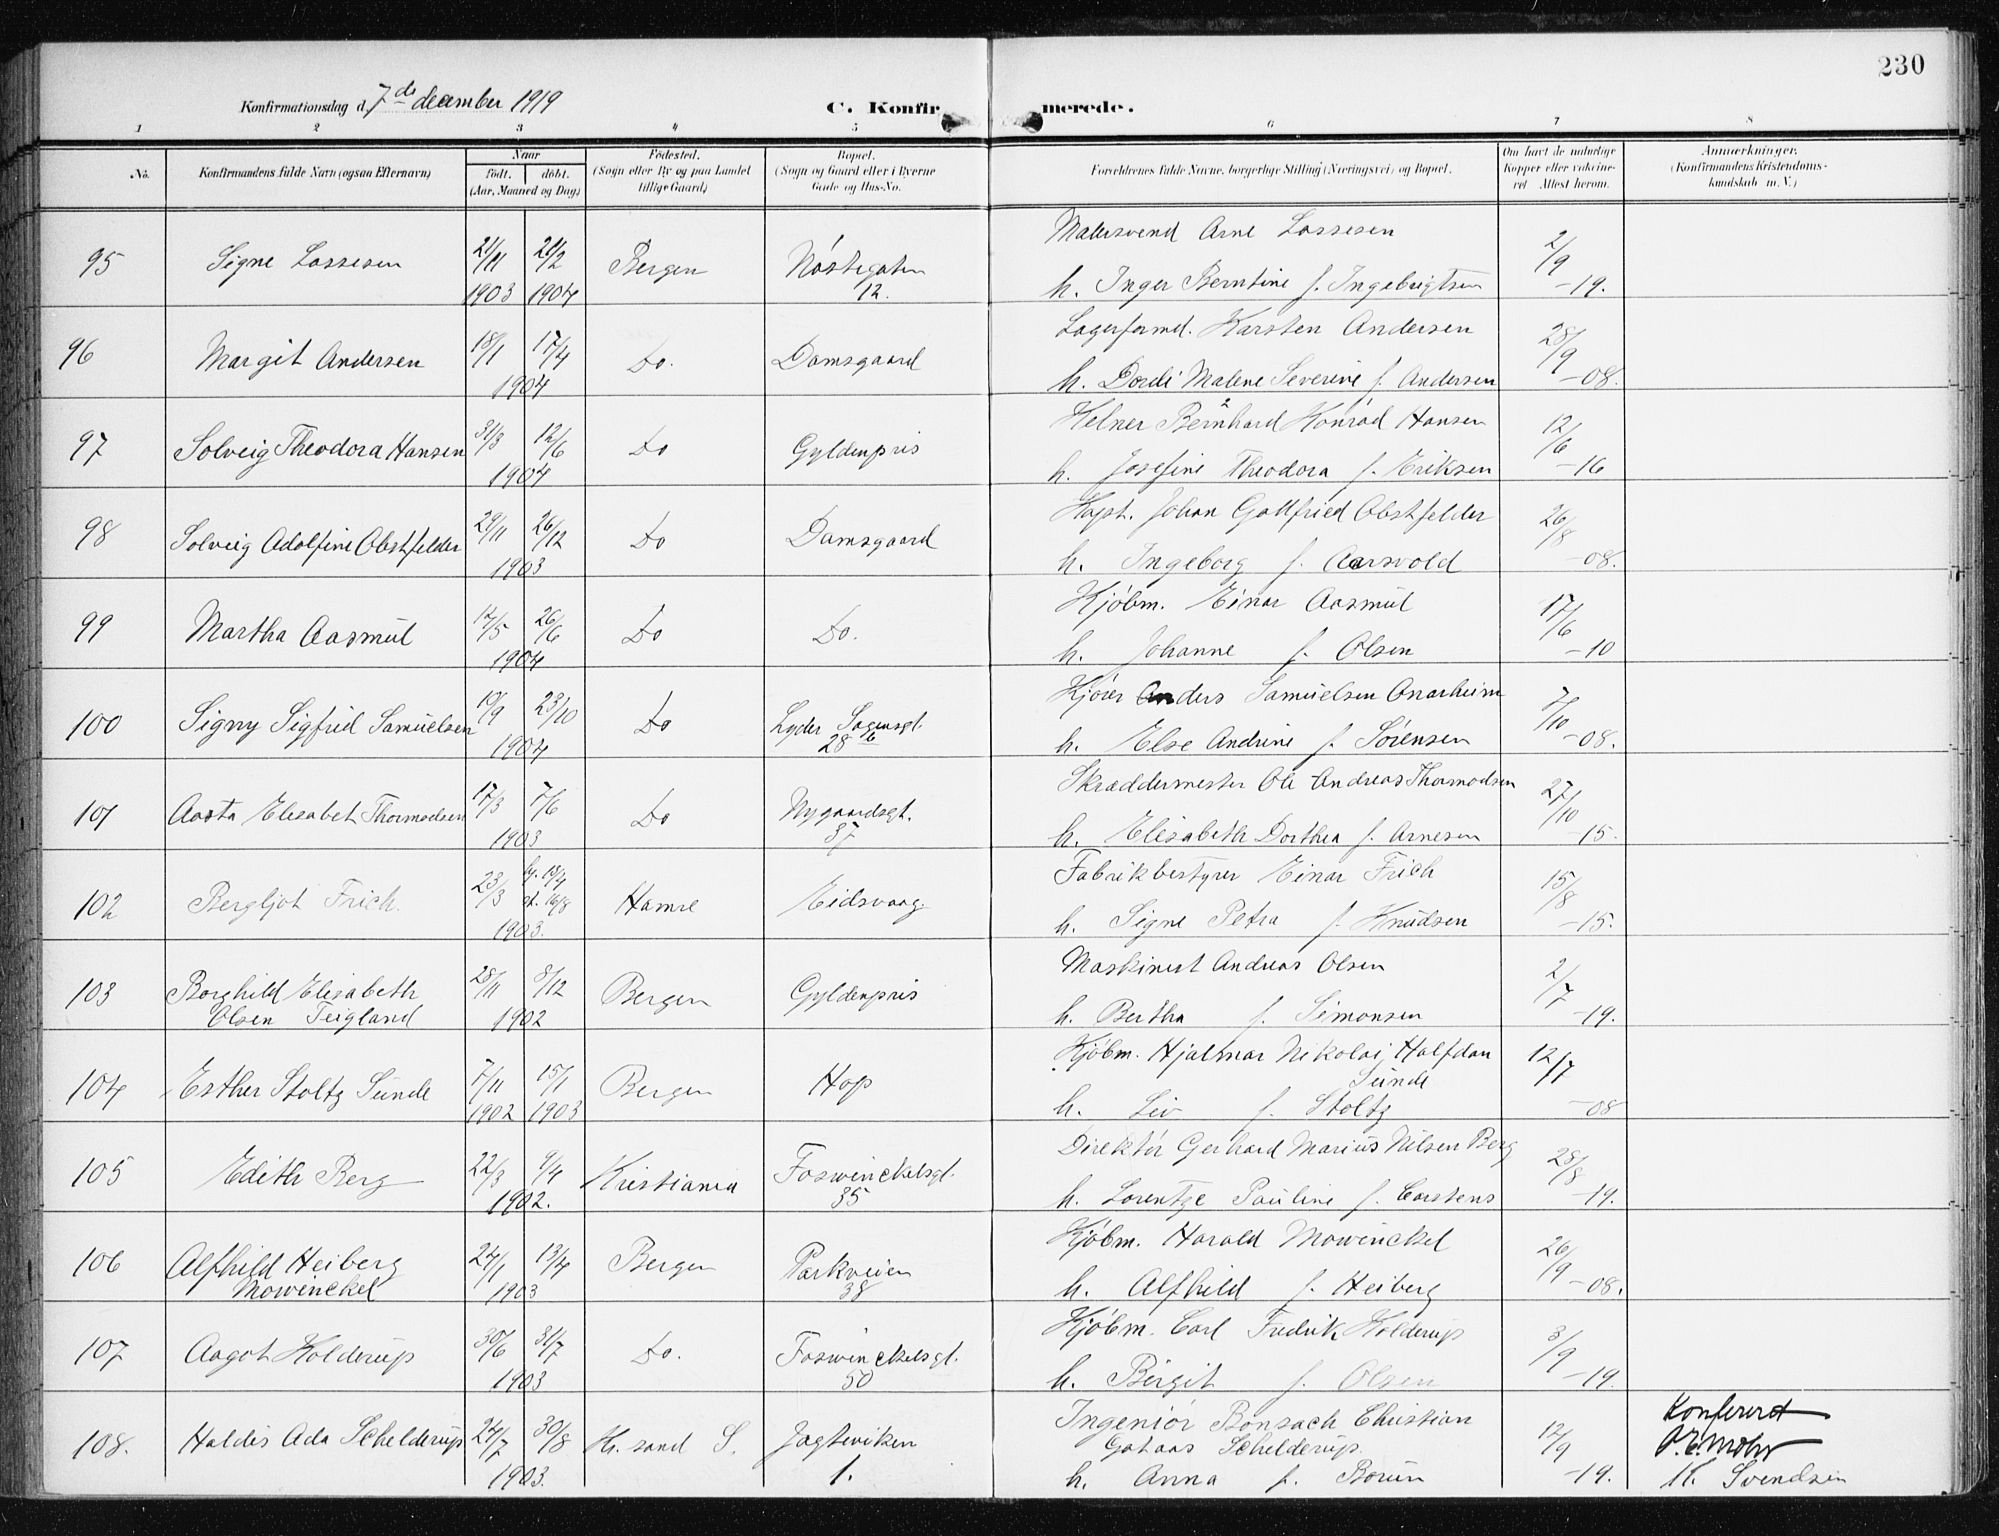 230
Konfirmationsdag d. 7de december 1919
C. Konfirmerede.
1 2 3 4 5 6 7 8
No. Konfirmandens fulde Navn (ogsaa Efternavn) Naar født. døbt. (Aar, Maaned og Dag) Fødested. (Sogn eller By og paa Landet tillige Gaard) Bopæl. (Sogn og Gaard eller i Byerne Gade og Hus-No. Forældrenes fulde Navne, borgerlige Stilling (Næringsvei) og Bopæl. Om havt de naturlige Kopper eller vaccineret. Attest herom. Anmærkninger. (Konfirmandens Kristendomskundskab m. V.)
95 Signe Lassesen 21/11 1903 21/2 1904 Bergen Nøstegaten 12. Malersvend Arne Lassesen
h. Inger Berntine f. Ingebrigtsen 2/9 -19.
96 Margit Andersen 18/1 17/4 1904 Do. Damsgaard Lagerformd. Karsten Andersen
h. Dordi Malene Severine f. Andersen 28/9 -08.
97 Solveig Theodora Hansen 31/3 12/6 1904 Do Gyldenpris Helner Bernhard Konrad Hansen
h. Josefine Theodora f. Eriksen 12/6 -16
98 Solveig Adolfine Obstfelder 29/11 26/12 1903 Do Damsgaard Kapt. Johan Gottfried Obstfelder
h. Ingeborg f. Aarsvold 26/8 -08.
99 Martha Aasmul 17/5 26/6 1904 Do Do. Kjøbm. Einar Aasmul
h. Johanne f. Olsen 17/6 -10
100 Signy Sigfrid Samuelsen 10/9 23/10 1904 Do Lyder Sagensgt. 28 b Kjører Anders Samuelsen Anarheim
h. Else Andrine f. Sørensen 7/10 -08.
101 Aasta Elisabet Thormodsen 17/3 7/6 1903 Do Nygaardsgt. 37 Skræddermester Ole Andreas Thormodsen
h. Elisabeth Dorthea f. Arnesen 27/10 -15.
102 Bergljot Frich. 23/3 16/8 1903. Hamre Eidsvaag Fabrikbestyrer Einar Frich
h. Signe Petra f. Knudsen 15/8 -15.
103 Borghild Elisabeth Olsen Teigland 28/11 8/12 1902 Bergen Gyldenpris Maskinist Andreas Olsen
h. Bertha f. Simonsen 2/7 -19.
104 Esther Stoltz Sunde 7/11 1902 15/1 1903 Bergen Hop Kjøbm. Hjalmar Nikolai Halfdan Sunde
h. Liv f. Stoltz 12/7 -08
105 Edith Berg 22/3 9/4 1902. Kristiania Foswinckelsgt. 35 Direktør Gerhard Marius Nilsen Berg
h. Lorentze Pauline f. Carstens 28/8 -19.
106 Alfhild Heiberg Mowinckel 24/1 13/4 1903 Bergen Parkveien 38 Kjøbm. Harald Mowinckel
h. Alfhild f. Heiberg 26/9 -08.
107 Aagot Kolderup 30/6 31/7 1903 Do. Foswinckelsgt. 50 Kjøbm. Carl Fredrik Kolderup
h. Birgit f. Olsen 3/9 -19.
108. Haldis Ada Schelderup 24/7 30/8 1903. Kr.sand S. Jægteviken 1. Ingeniør Bonsach Christian Schelderup.
h. Anna f. Borun 12/9 -19. Konfererd
P. E. Mohr
K. Svendsen